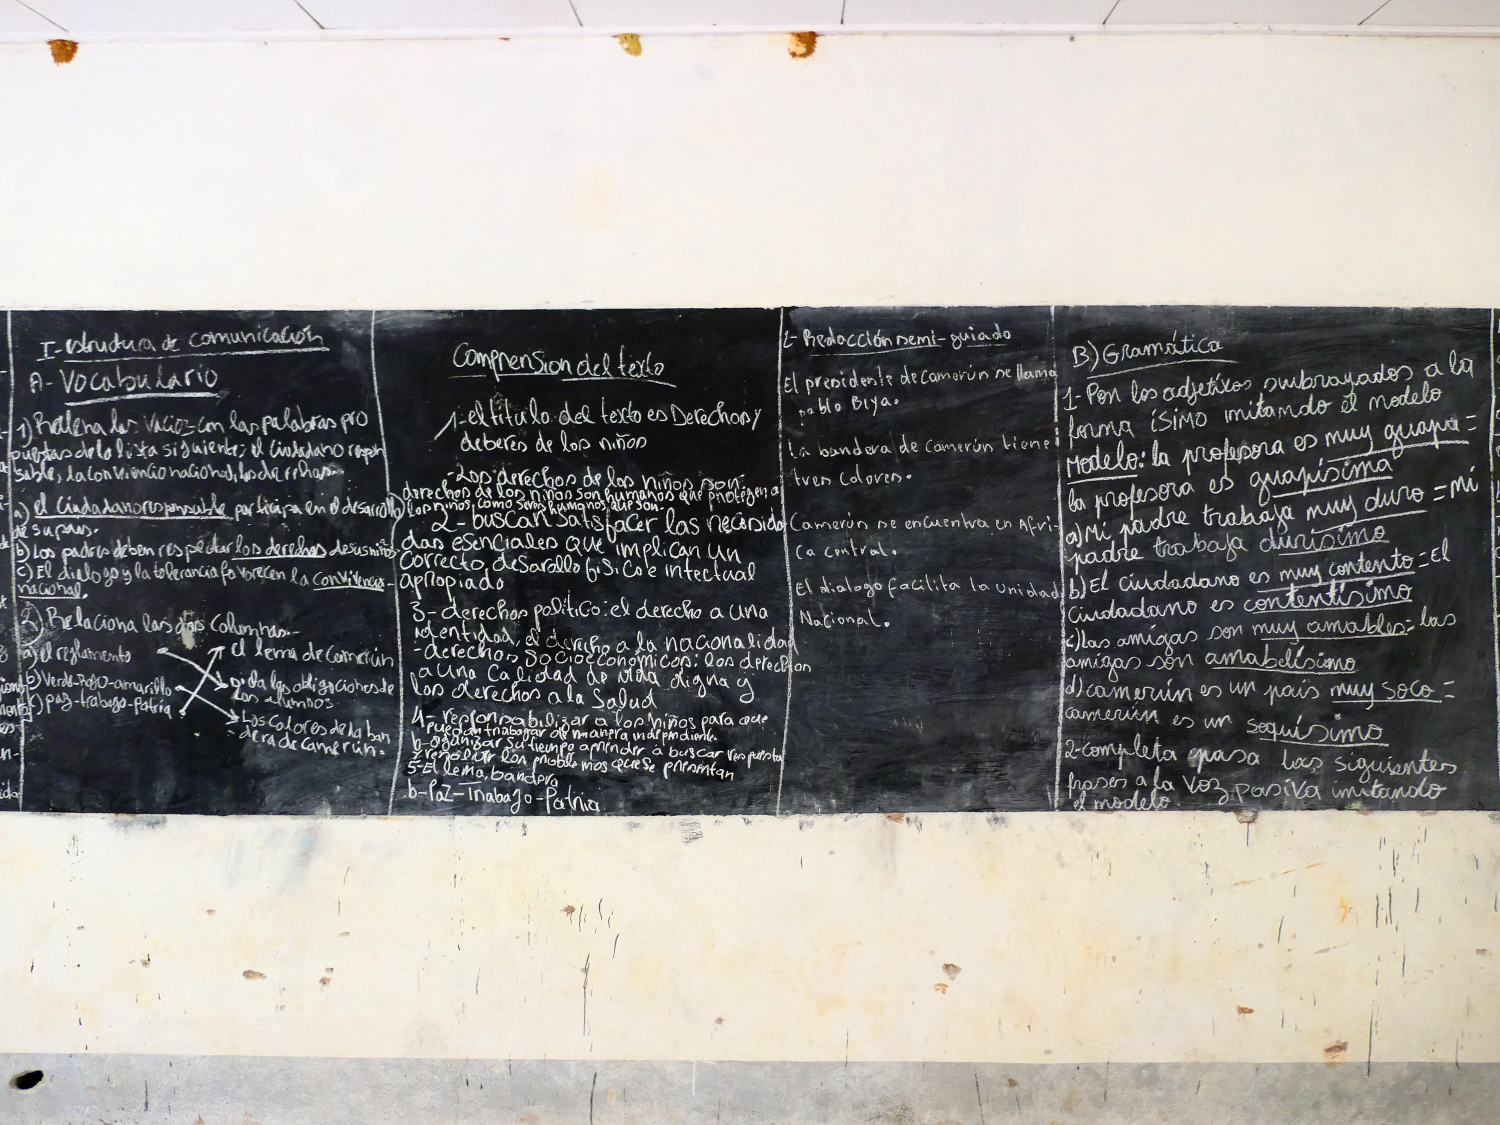 I- structura de comunicación
A- Vocabulario
1) Rellena los vacios con las palabras pro
puestas de la lista siguiente: el ciudadano respon
sable, la convivencia nacional, los derechos.
a) el ciudadano responsable participa en el desarrollo
de su pais.
b) Los padres deben respectar los derechos de sus niños
c) El dialogo y la tolerancia favorecen la convivencia
nacional.
2) Relaciona las dos columnas.
a) el reglamento
el lema de Camerún
b) Verde-rojo-amarillo
da las obligaciones de
los alumnos
c) paz-trabajo-patria
Los colores de la ban
dera de Camerún.
Comprension del texto
1- el titulo del texto es Derechos y
deberes de los niños
- Los derechos de los niños son:
derechos de los niños son humanos que protegen a
los niños como seres humanos que son.
2- buscan satisfacer las necesida
das esenciales que implican un
correcto desarollo fisico e intectual
apropiado
3- derechos politico: el derecho a una
identidad, el derecho a la nacionalidad
- derechos socioeconomicos: los derechos
a una Calidad de vida digna y
los derechos a la Salud
4- responsabilizar a los niños para que
puedan trabajar de manera independiente.
b- organizar su tiempo aprender a buscar respuesta
resolver los problemas que se presentan
5- El lema, bandera
b- Paz-Trabajo-Patria
2- Redacción semi-guiado
El presidente de Camerún se llama
pablo Biya.
La bandera de Camerún tiene
tres colores.
Camerún se encuentra en Afri-
ca central.
El dialogo facilita la Unidad
Nacional.
B) Gramática
1- Pon los adjetivos subrayados a la
forma ísimo imitando el modelo
Modelo: la profesora es muy guapa =
la profesora es guapísima
a) Mi padre trabaja muy duro = mi
padre trabaja durísimo
b) El ciudadano es muy contento = El
ciudadano es contentísimo
c) Las amigas son muy amables = las
amigas son amabelísimo
d) Camerún es un pais muy soco =
camerún es un soquísimo
2- completa y pasa las siguientes
frases a la voz pasiva imitando
el modelo.